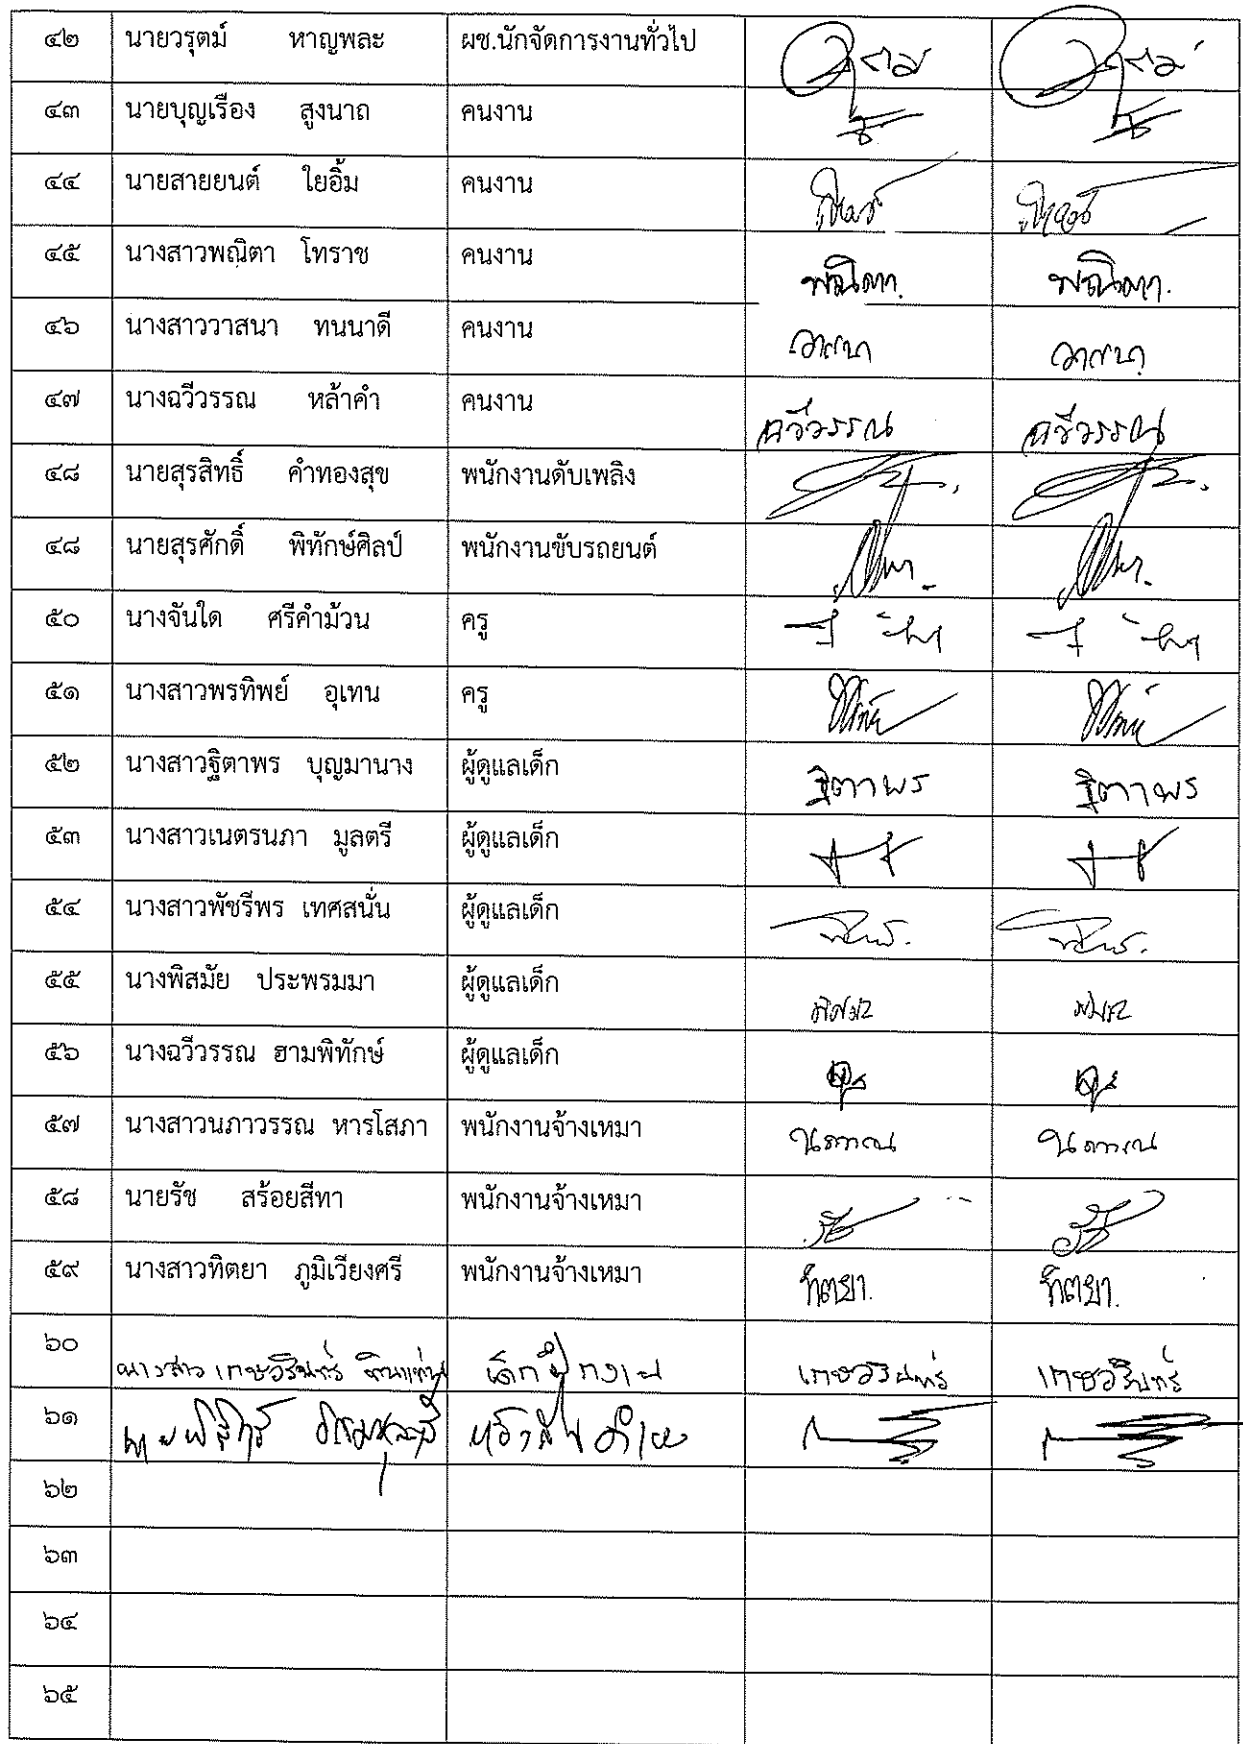 ๔๒ นายวรุตม์ หาญพละ ผช.นักจัดการงานทั่วไป
๔๓ นายบุญเรือง สูงนาถ คนงาน
๔๔ นายสายยนต์ ใยอิ้ม คนงาน
๔๕ นางสาวพณิตา โทราช คนงาน พณิตา. พณิตา.
๔๖ นางสาววาสนา ทนนาดี คนงาน วาสนา วาสนา
๔๗ นางฉวีวรรณ หล้าคำ คนงาน ฉวีวรรณ ฉวีวรรณ
๔๘ นายสุรสิทธิ์ คำทองสุข พนักงานดับเพลิง
๔๘ นายสุรศักดิ์ พิทักษ์ศิลป์ พนักงานขับรถยนต์
๕๐ นางจันใด ศรีคำม้วน ครู
๕๑ นางสาวพรทิพย์ อุเทน ครู
๕๒ นางสาวฐิตาพร บุญมานาง ผู้ดูแลเด็ก ฐิตาพร ฐิตาพร
๕๓ นางสาวเนตรนภา มูลตรี ผู้ดูแลเด็ก
๕๔ นางสาวพัชรีพร เทศสนั่น ผู้ดูแลเด็ก
๕๕ นางพิสมัย ประพรมมา ผู้ดูแลเด็ก
๕๖ นางฉวีวรรณ ฮามพิทักษ์ ผู้ดูแลเด็ก
๕๗ นางสาวนภาวรรณ หารโสภา พนักงานจ้างเหมา
๕๘ นายรัช สร้อยสีทา พนักงานจ้างเหมา
๕๙ นางสาวทิตยา ภูมิเวียงศรี พนักงานจ้างเหมา ทิตยา. ทิตยา.
๖๐ นางสาว เกษวรินทร์ เด็กฝึกงาน เกษวรินทร์ เกษวรินทร์
๖๑
๖๒
๖๓
๖๔
๖๕